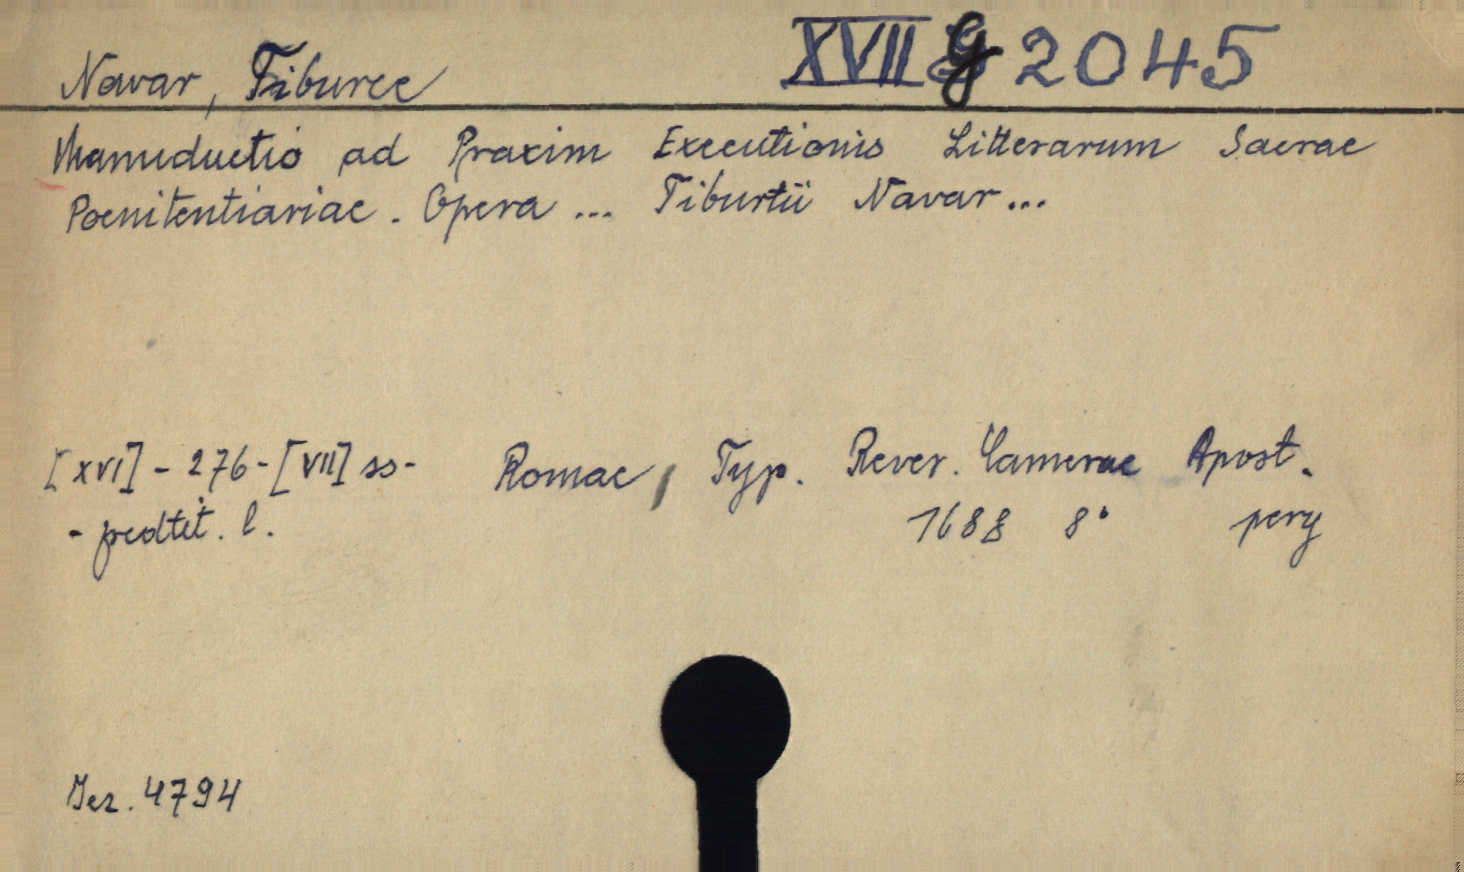 XVII G 2045
Navar, Tiburce
Manuductio ad Praxim Executionis Litterarum Sacrae
Poenitentiariae. Opera ... Tiburtii Navar...
[XVI] - 276 - [VII] ss - Romae, Typ. Rever. Camerae Apost.
- predtit. l. 1688 8° perg
Jez. 4794